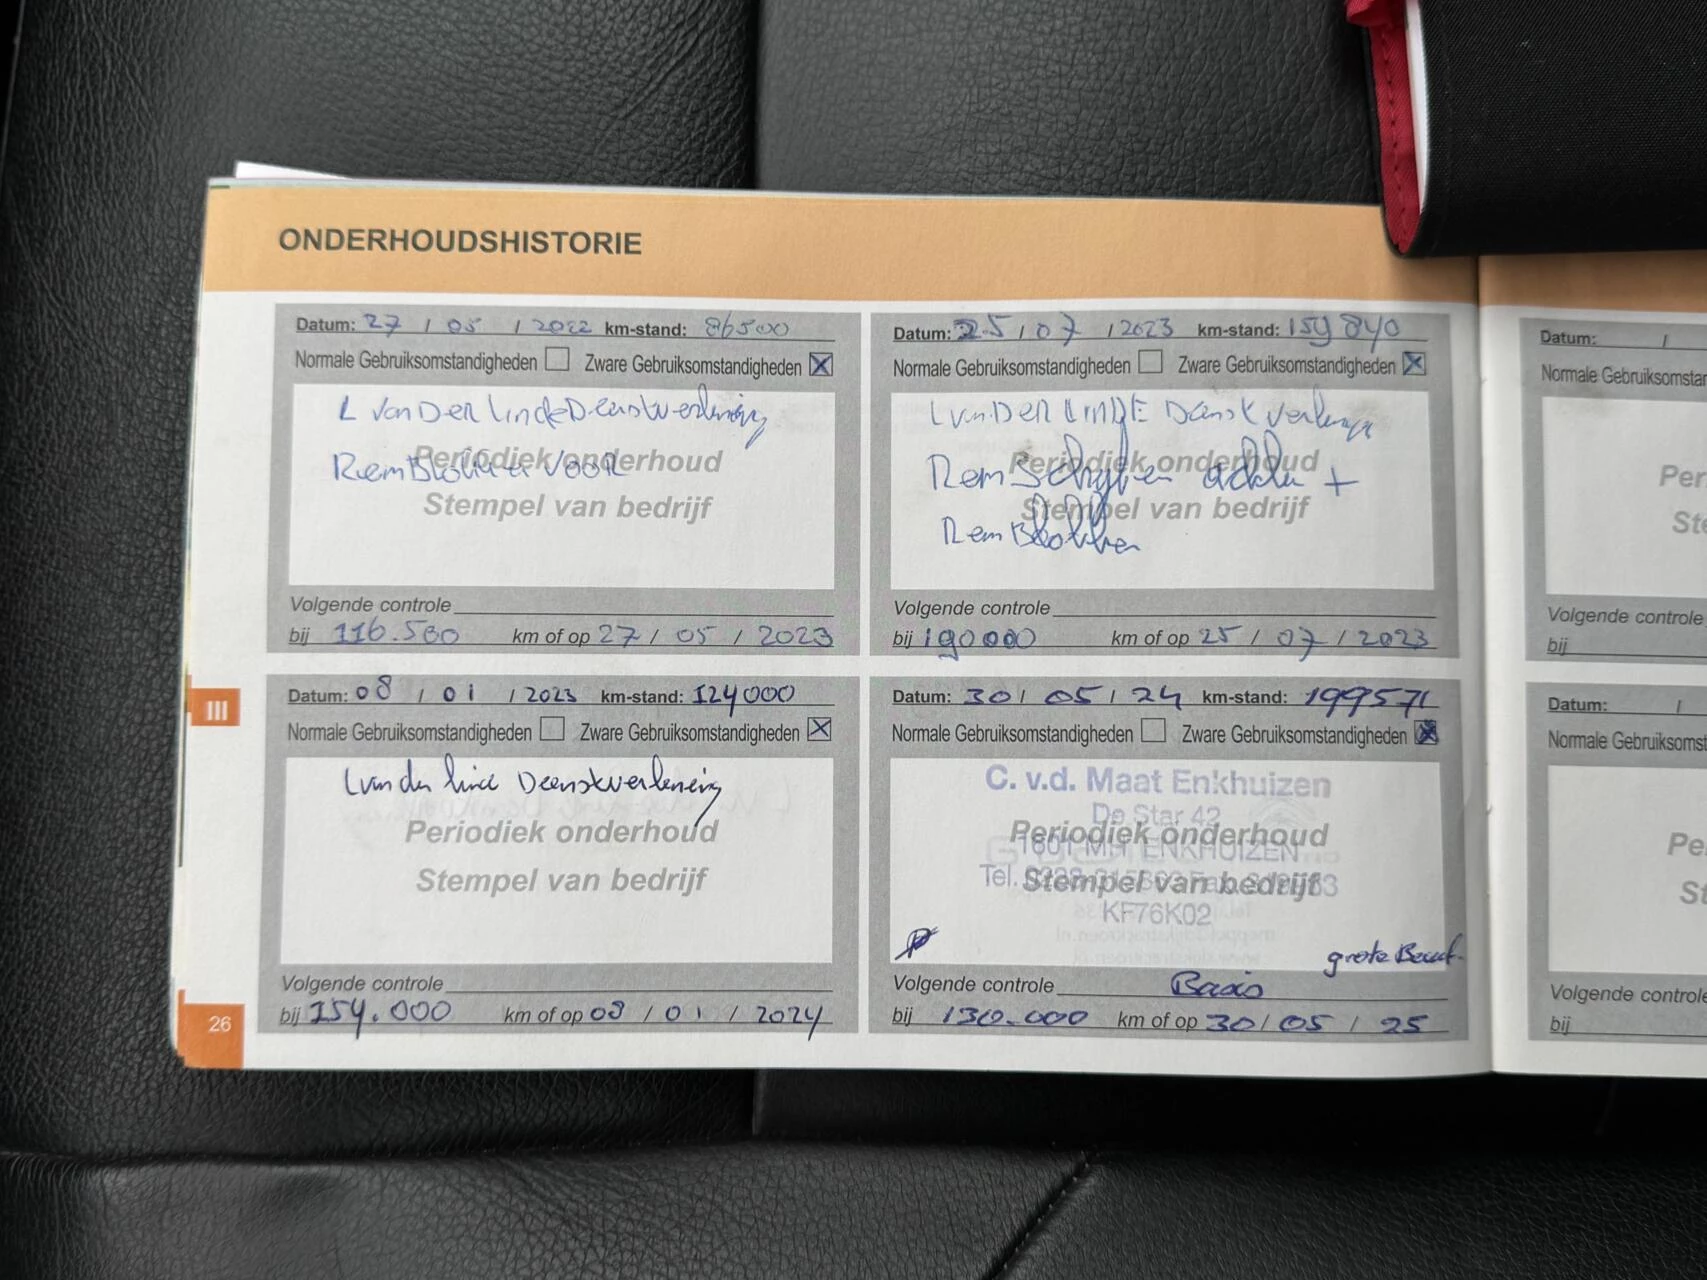 ONDERHOUDSHISTORIE
Datum: 27 / 05 / 2022 km-stand: 86500
Normale Gebruiksomstandigheden Zware Gebruiksomstandigheden
L van Der linde Dienstverlening
Remblokken voor
Periodiek onderhoud
Stempel van bedrijf
Volgende controle
bij 116.500 km of op 27 / 05 / 2023
Datum: 25 / 07 / 2023 km-stand: 159840
Normale Gebruiksomstandigheden Zware Gebruiksomstandigheden
L van Der linde Dienstverlening
Remschijven achter +
Remblokken
Periodiek onderhoud
Stempel van bedrijf
Volgende controle
bij 190000 km of op 25 / 07 / 2023
III
Datum: 08 / 01 / 2023 km-stand: 124000
Normale Gebruiksomstandigheden Zware Gebruiksomstandigheden
L van der linde Dienstverlening
Periodiek onderhoud
Stempel van bedrijf
Volgende controle
bij 154.000 km of op 08 / 01 / 2024
Datum: 30 / 05 / 24 km-stand: 199571
Normale Gebruiksomstandigheden Zware Gebruiksomstandigheden
C. v.d. Maat Enkhuizen
De Star 42
Periodiek onderhoud
1601 MH ENKHUIZEN
Tel.
Stempel van bedrijf
KF76K02
grote Beurt
Volgende controle Basis
bij 130.000 km of op 30 / 05 / 25
26
Datum: /
Normale Gebruiksomsta
Per
Ste
Volgende controle
bij
Datum: /
Normale Gebruiksomst
Pe
St
Volgende controle
bij